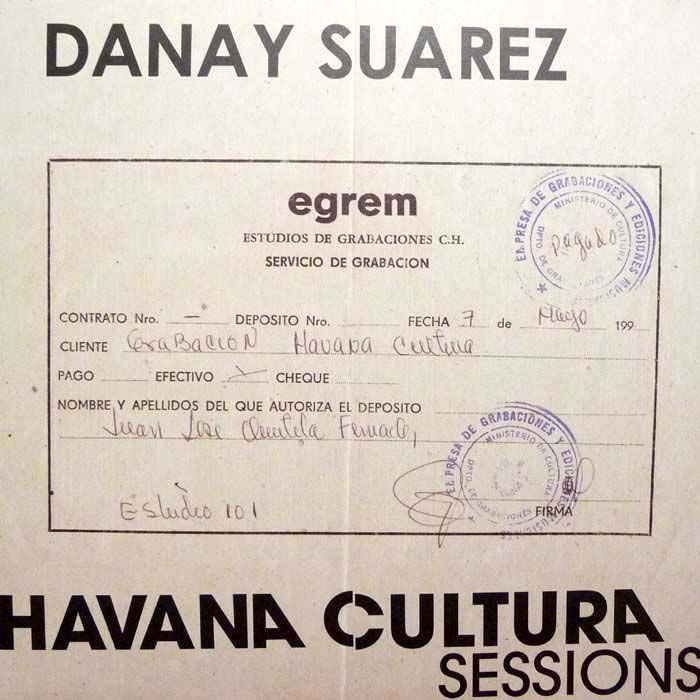 DANAY SUAREZ
egrem
ESTUDIOS DE GRABACIONES C.H.
SERVICIO DE GRABACION
EMPRESA DE GRABACIONES Y EDICIONES MUSICALES
MINISTERIO DE CULTURA
DPTO DE GRABACIONES
Pagado
CONTRATO Nro. — DEPOSITO Nro. FECHA 7 de Mayo 199
CLIENTE GRABACION Havana Cultura
PAGO EFECTIVO CHEQUE
NOMBRE Y APELLIDOS DEL QUE AUTORIZA EL DEPOSITO
Juan Jose
EMPRESA DE GRABACIONES Y EDICIONES MUSICALES
MINISTERIO DE CULTURA
DPTO DE GRABACIONES
Estudio 101
FIRMA
HAVANA CULTURA
SESSIONS